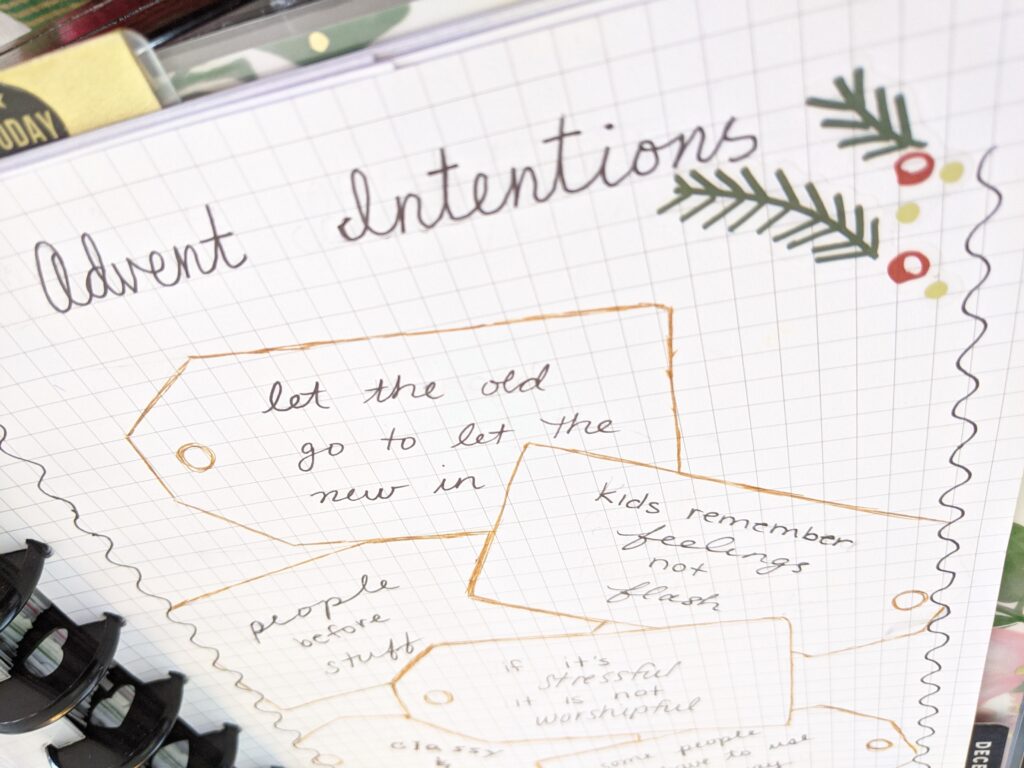 TODAY
Advent Intentions
let the old
go to let the
new in
kids remember
feelings
not
flash
people
before
stuff
if it's
stressful
it is not
worshipful
classy
some people
to use
DECE